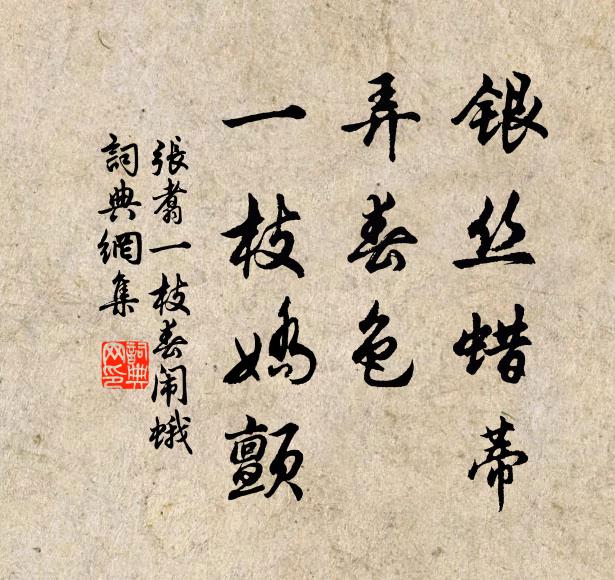 银丝蜡蒂
弄春色
一枝娇颤
張翥一枝春闹蛾
詞典網集
詞典网印